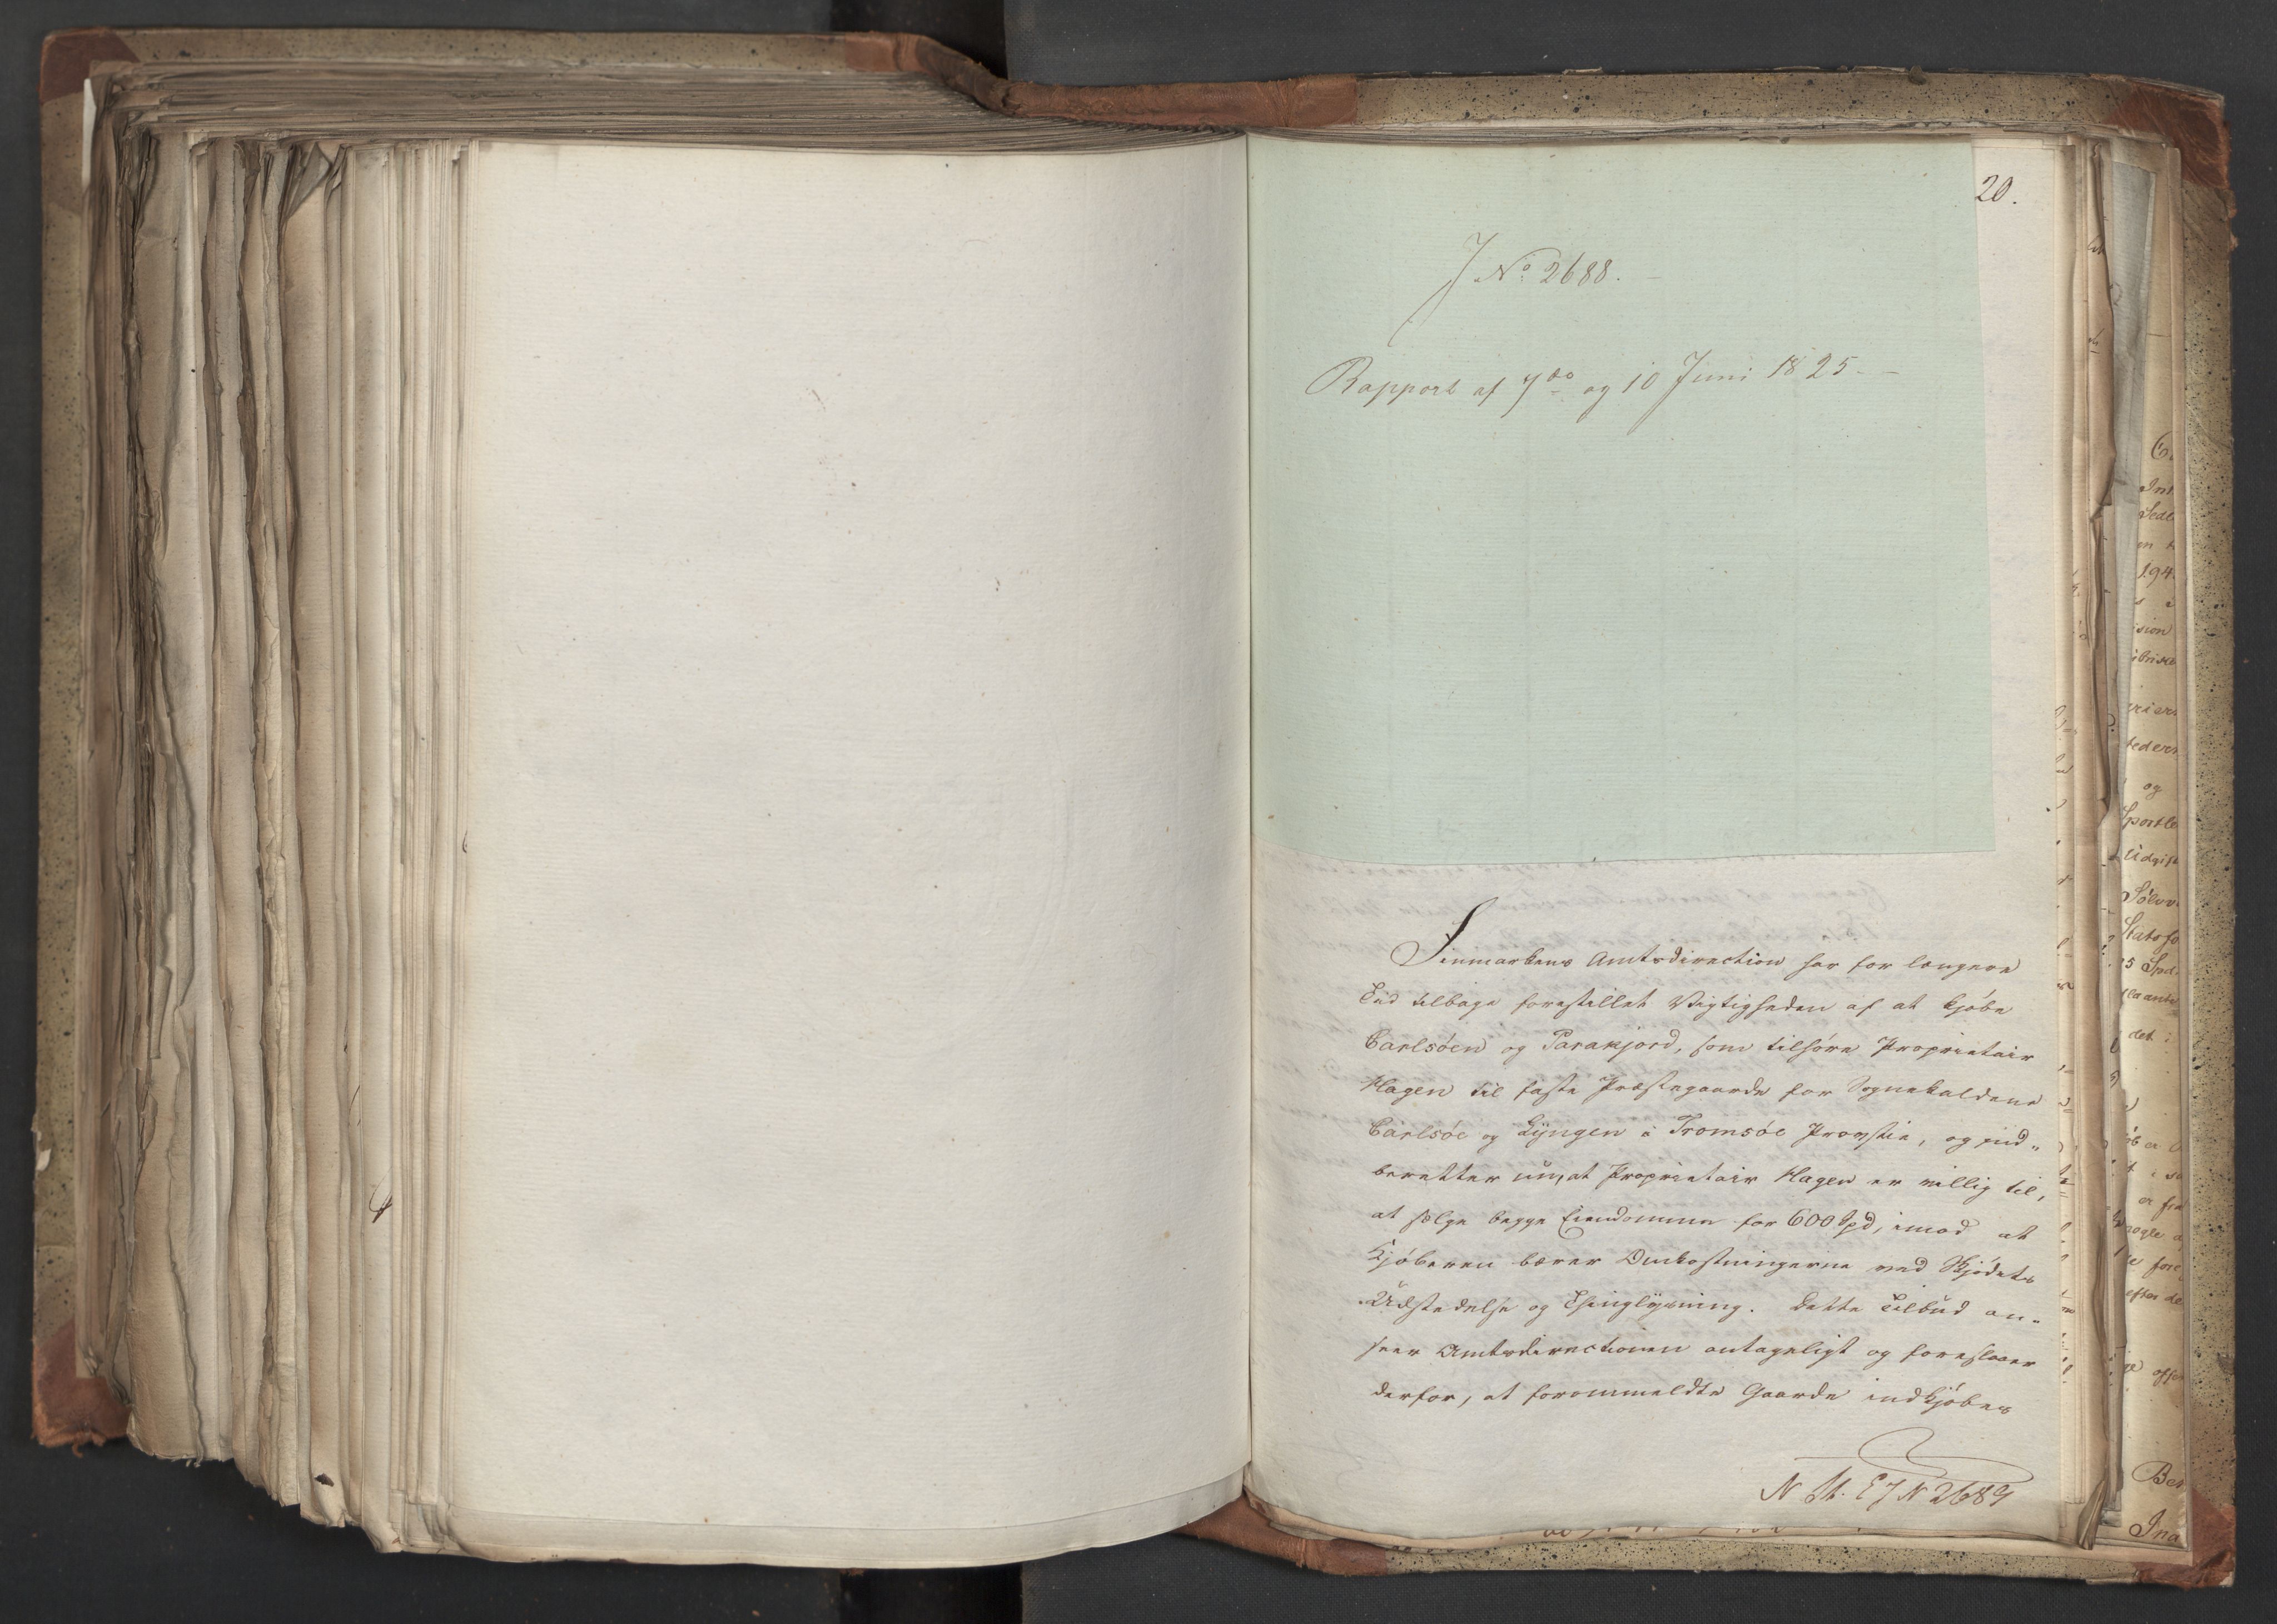 20.
J No 2688.
Rapport af 7de og 10 Juni 1825.
Finmarkens Amtsdirection har for længere
Tiid tilbage forestillet Vigtigheden af at kjøbe
Carlsøen og Parakjord, som tilhøre Proprietair
Hagen til faste Præstegaarde for Sognekaldene
Carlsøe og Lÿngen i Tromsøe Provstie, og ind„
beretter nu, at Proprietair Hagen er villig til,
at sælge begge Eiendomme for 600 Spd, imod at
Kjøberen bærer Omkostningerne ved Skjødets
Udstedelse og Thinglÿsning. Dette Tilbud an„
seer Amtsdirectionen antageligt og foreslaaer
derfor, at forommeldte Gaarde indkjøbes
N 2689